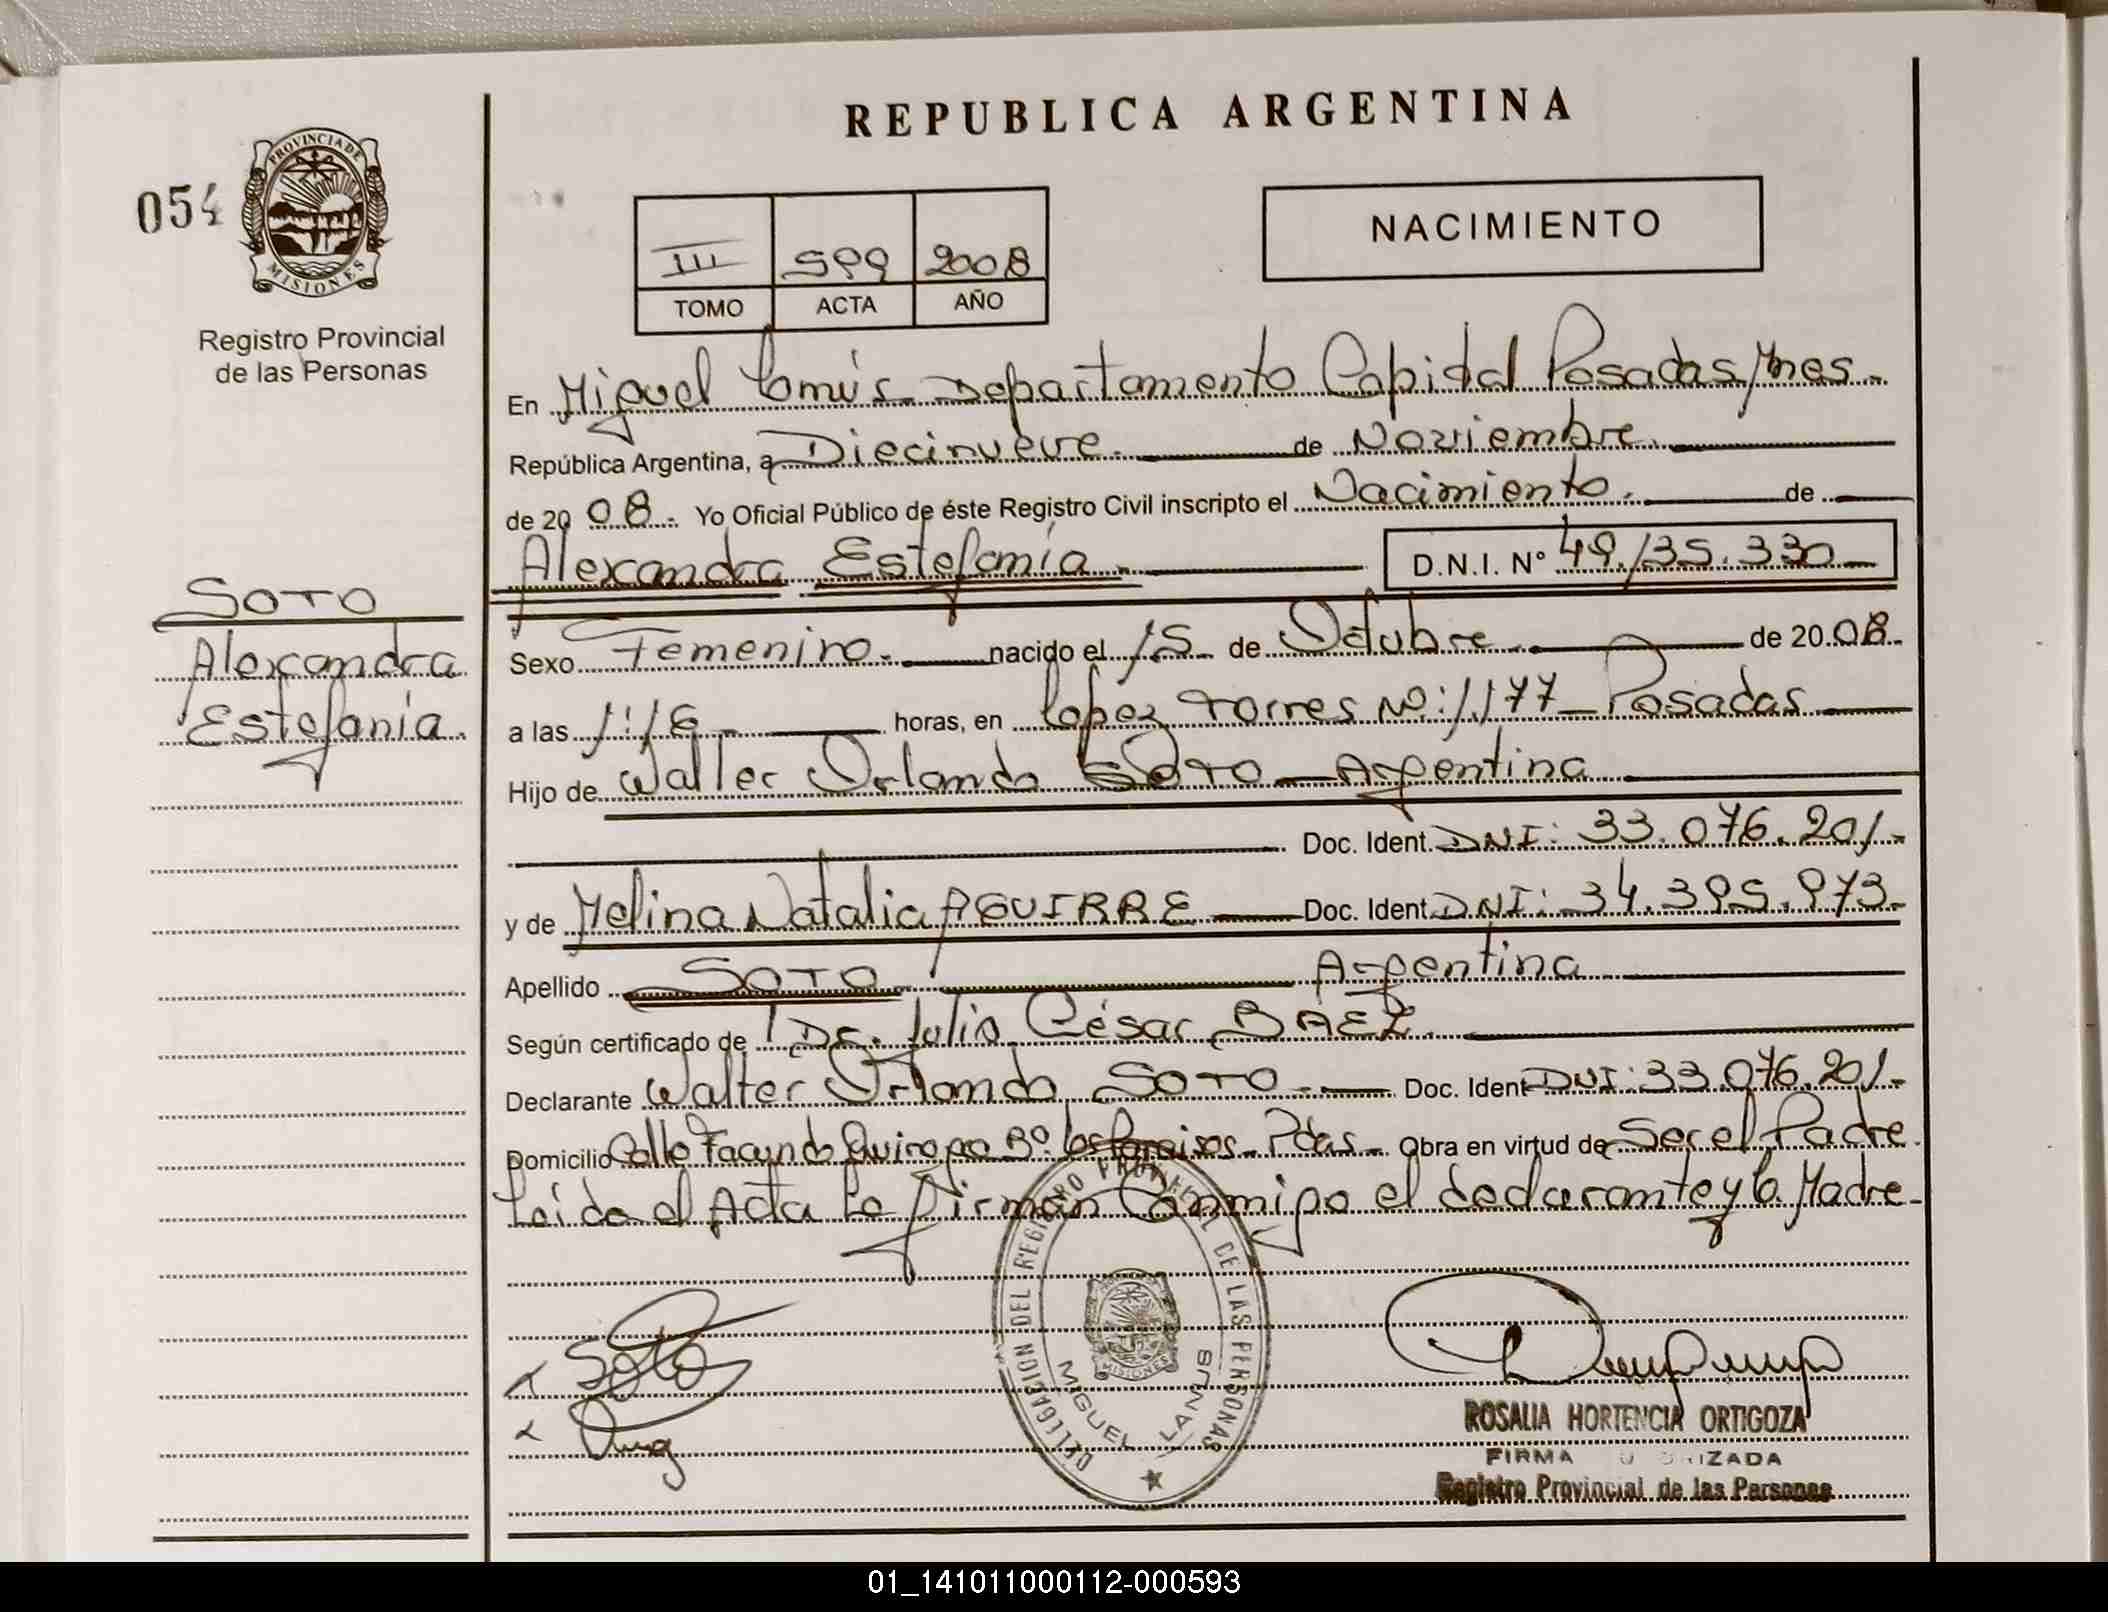 REPUBLICA ARGENTINA
054
PROVINCIA DE
MISIONES
Registro Provincial
de las Personas
III 599 2008
TOMO ACTA AÑO
NACIMIENTO
En Miguel Lanús Departamento Capital Posadas Mnes.
República Argentina, a Diecinueve. de Noviembre.
de 20 08. Yo Oficial Público de éste Registro Civil inscripto el Nacimiento. de
Alexandra Estefanía. D.N.I. Nº 49.135.330
SOTO
Alexandra
Estefanía.
Sexo Femenino. nacido el 15 de Octubre de 20 08.
a las 11:16 horas, en López Torres Nº: 1.177 Posadas
Hijo de Walter Orlando SOTO Argentina
Doc. Ident. DNI: 33.076.201.
y de Melina Natalia AGUIRRE Doc. Ident. DNI: 34.395.973.
Apellido SOTO Argentina
Según certificado de Dr. Julio César BAEZ.
Declarante Walter Orlando SOTO. Doc. Ident DNI: 33.076.201.
Domicilio Calle Facundo Quiroga Bº. los Paraisos. Pdas. Obra en virtud de Ser el Padre.
Leída el Acta la firman Conmigo el declarante y la Madre.
DELEGACION DEL REGISTRO PROVINCIAL DE LAS PERSONAS
MISIONES
MIGUEL LANUS
Soto
ROSALIA HORTENCIA ORTIGOZA
FIRMA
Registro Provincial de las Personas
01_141011000112-000593